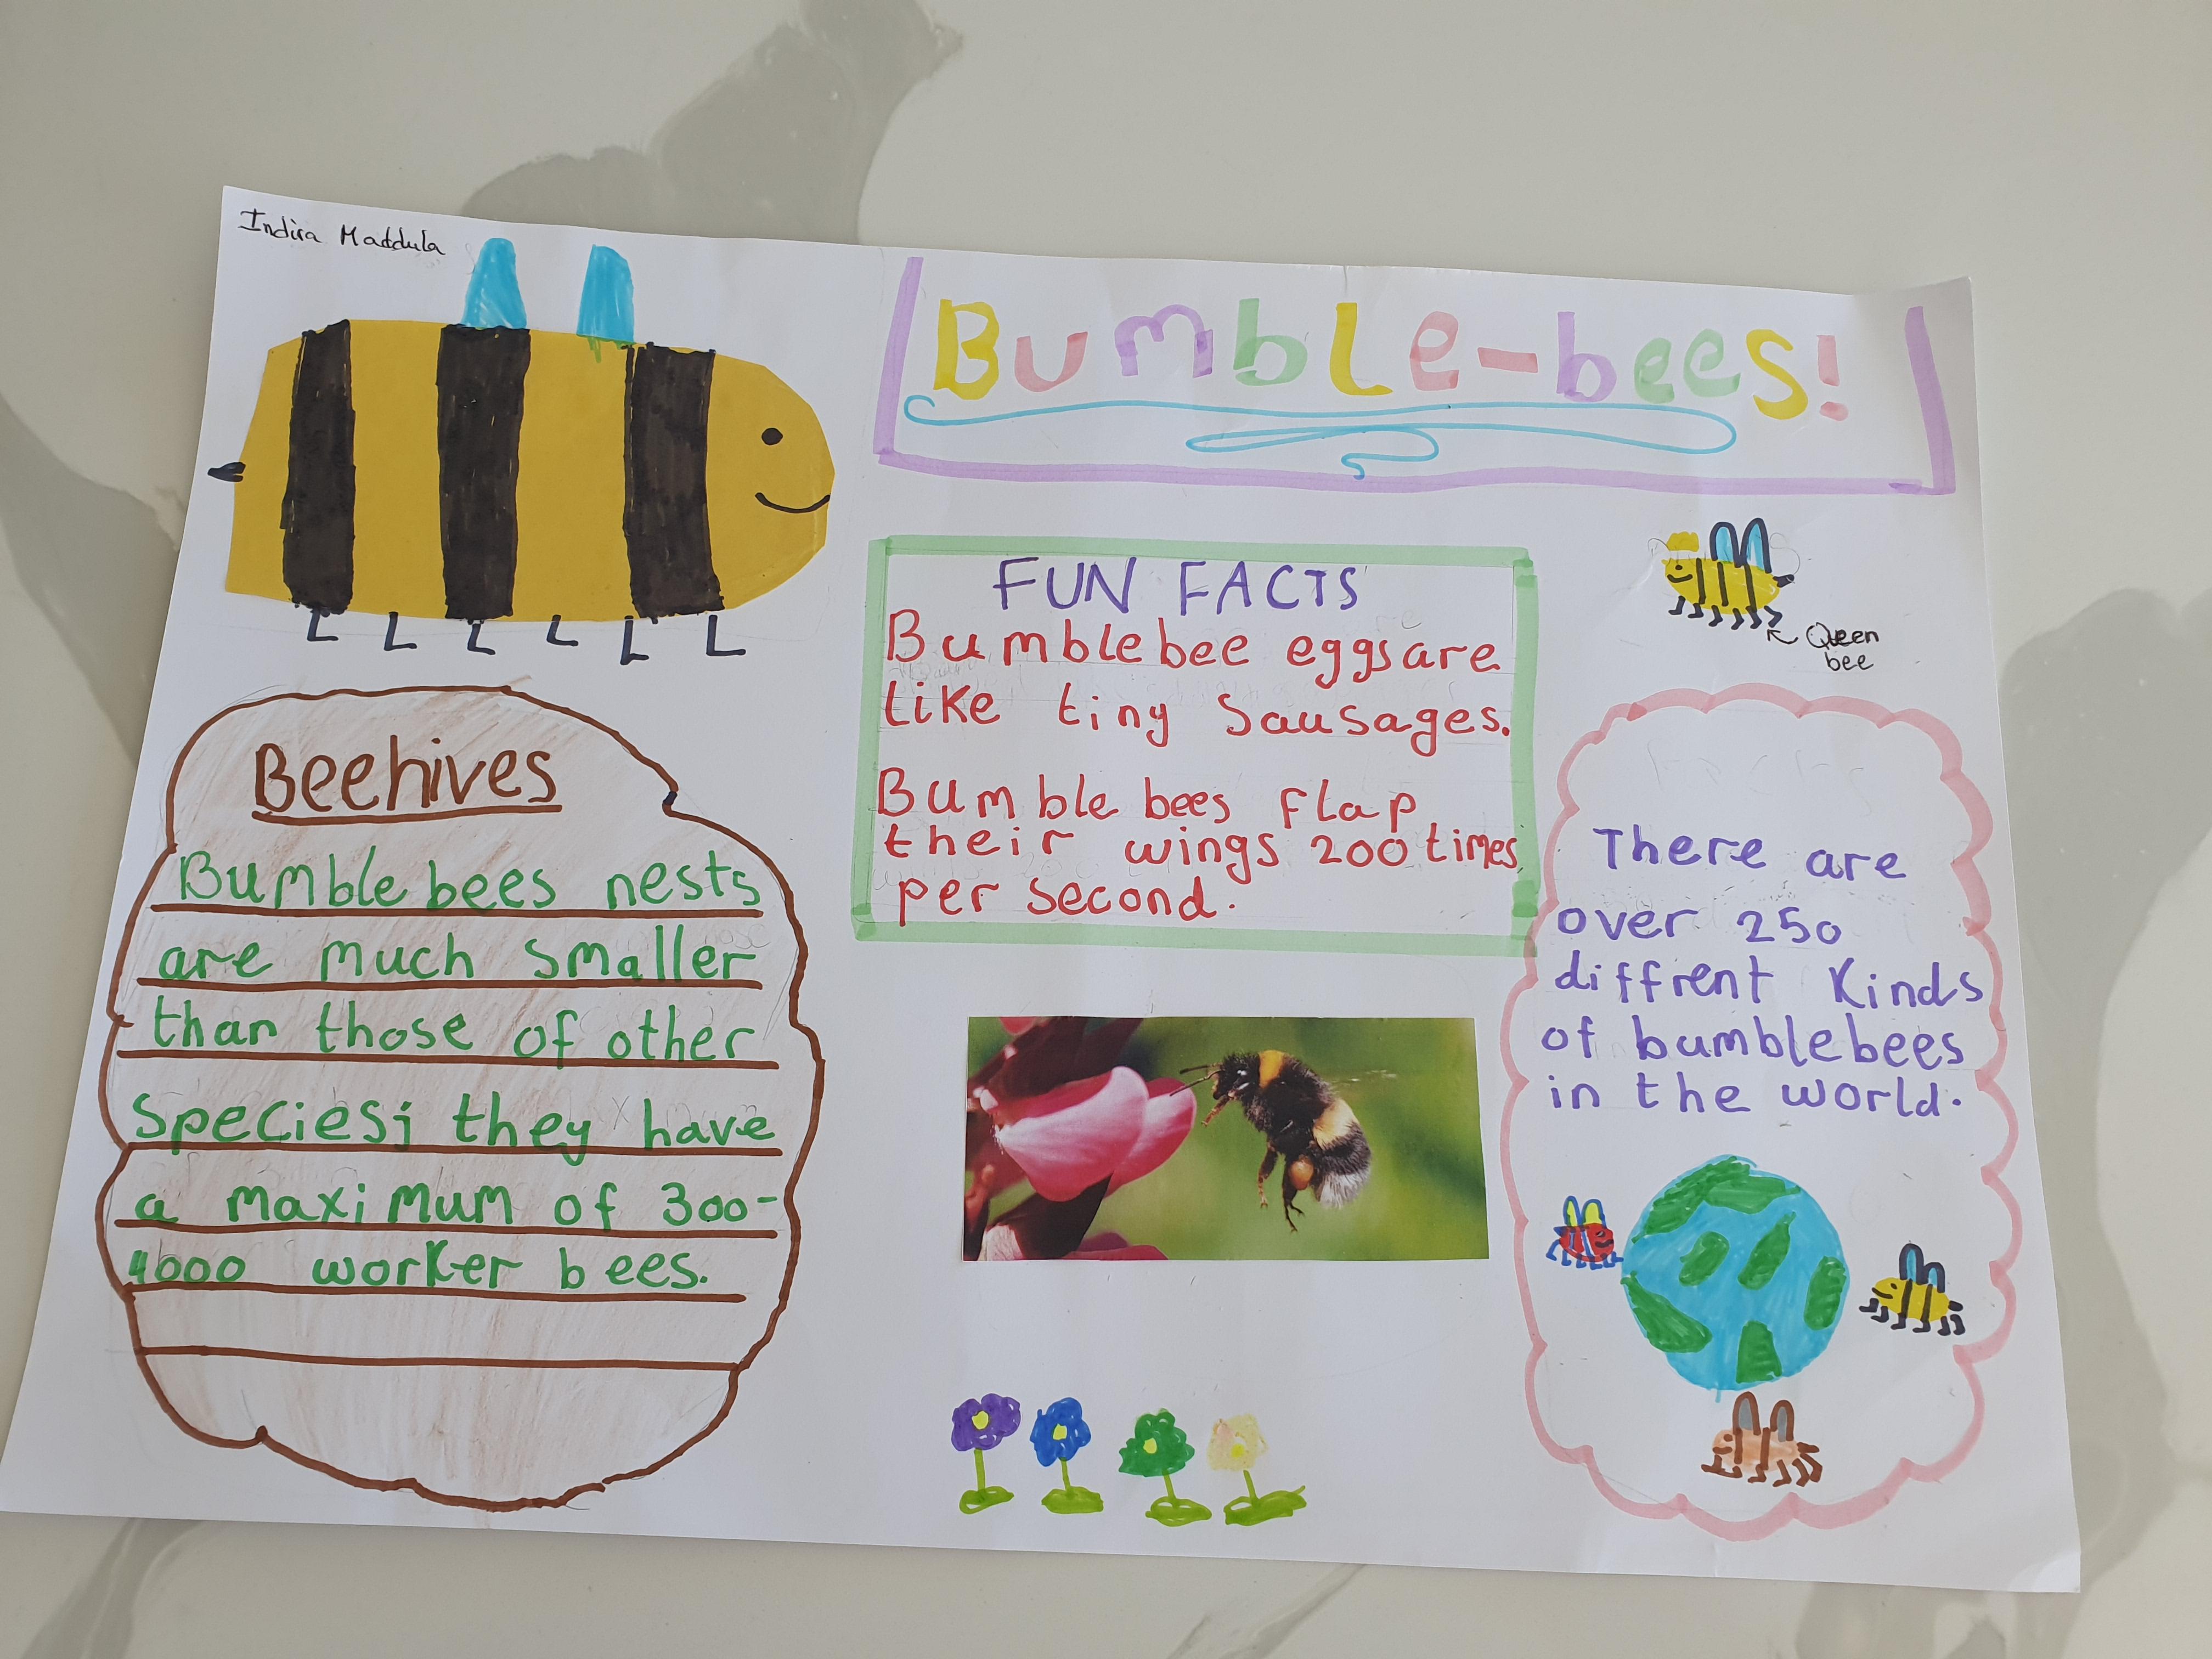 Indira Maddula
Bumble-bees!
FUN FACTS
Bumblebee eggs are
like tiny Sausages.
Bumble bees flap
their wings 200 times
per second.
Queen
bee
Beehives
Bumble bees nests
are much smaller
than those of other
Species; they have
a maximum of 300-
4000 worker bees.
There are
over 250
diffrent Kinds
of bumblebees
in the world.